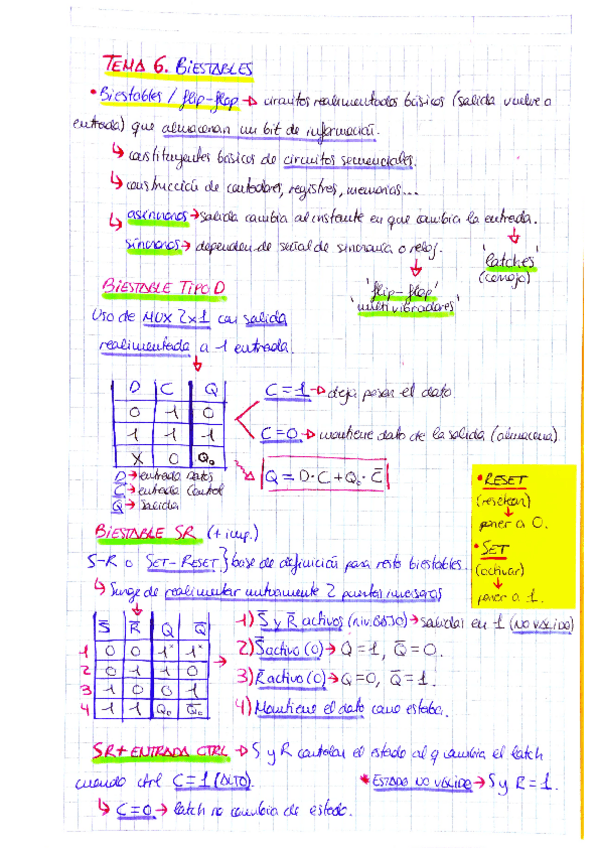 TEMA 6. BIESTABLES
• Biestables / flip-flop → circuitos realimentados básicos (salida vuelve a
entrada) que almacenan un bit de información.
↳ constituyentes básicos de circuitos secuenciales.
↳ construcción de contadores, registros, memorias...
↳ asíncronos → salida cambia al instante en que cambia la entrada.
síncronos → dependen de señal de sincronía o reloj.
'latches'
(cerrojo)
'flip-flop'
'multivibradores'
BIESTABLE TIPO D
Uso de MUX 2x1 con salida
realimentada a 1 entrada.
D C Q
0 1 0
1 1 1
X 0 Q₀
C=1 → deja pasar el dato.
C=0 → mantiene dato de la salida (almacena)
Q = D·C + Q₀·C̅
D → entrada Datos
C → entrada Control
Q → Salida
• RESET
(resetear)
↓
poner a 0.
• SET
(activar)
↓
poner a 1.
BIESTABLE SR (+ imp.)
S-R o SET-RESET } base de definición para resto biestables.
↳ Surge de realimentar mutuamente 2 puertas inversoras
S̅ R̅ Q Q̅
1 0 0 1* 1*
2 0 1 1 0
3 1 0 0 1
4 1 1 Q₀ Q̅₀
1) S̅ y R̅ activos (niv. BAJO) → salidas en 1 (NO VÁLIDO)
2) S̅ activo (0) → Q = 1, Q̅ = 0.
3) R̅ activo (0) → Q = 0, Q̅ = 1.
4) Mantiene el dato como estaba.
SR + ENTRADA CTRL → S y R controlan el estado al q cambia el latch
cuando ctrl C=1 (ALTO).
* ESTADO NO VÁLIDO → S y R = 1.
↳ C=0 → latch no cambia de estado.